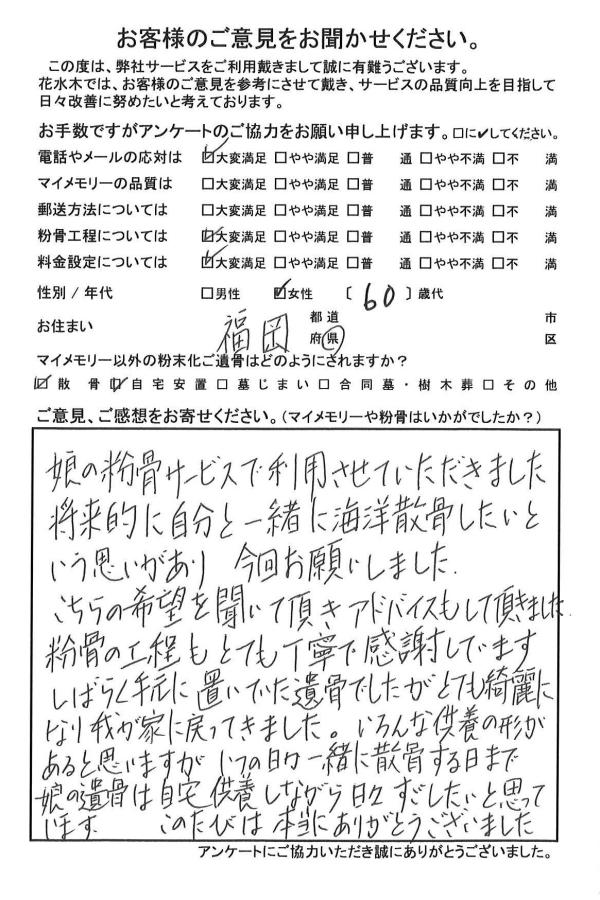 お客様のご意見をお聞かせください。
この度は、弊社サービスをご利用戴きまして誠に有難うございます。
花水木では、お客様のご意見を参考にさせて戴き、サービスの品質向上を目指して
日々改善に努めたいと考えております。
お手数ですがアンケートのご協力をお願い申し上げます。□に✔してください。
電話やメールの応対は ☑大変満足 □やや満足 □普 通 □やや不満 □不 満
マイメモリーの品質は □大変満足 □やや満足 □普 通 □やや不満 □不 満
郵送方法については □大変満足 □やや満足 □普 通 □やや不満 □不 満
粉骨工程については ☑大変満足 □やや満足 □普 通 □やや不満 □不 満
料金設定については ☑大変満足 □やや満足 □普 通 □やや不満 □不 満
性別 / 年代 □男性 ☑女性 〔 60 〕歳代
お住まい 福岡 都道府県 市区
マイメモリー以外の粉末化ご遺骨はどのようにされますか?
☑散 骨 ☑自宅安置 □墓じまい □合同墓・樹木葬 □その他
ご意見、ご感想をお寄せください。(マイメモリーや粉骨はいかがでしたか?)
娘の粉骨サービスで利用させていただきました
将来的に自分と一緒に海洋散骨したいと
いう思いがあり 今回お願いしました.
こちらの希望を聞いて頂きアドバイスもして頂きました
粉骨の工程もとても丁寧で感謝しています
しばらく手元に置いていた遺骨でしたがとても綺麗に
なり我が家に戻ってきました。いろんな供養の形が
あると思いますが いつの日か一緒に散骨する日まで
娘の遺骨は自宅供養しながら日々すごしたいと思って
います このたびは本当にありがとうございました
アンケートにご協力いただき誠にありがとうございました。